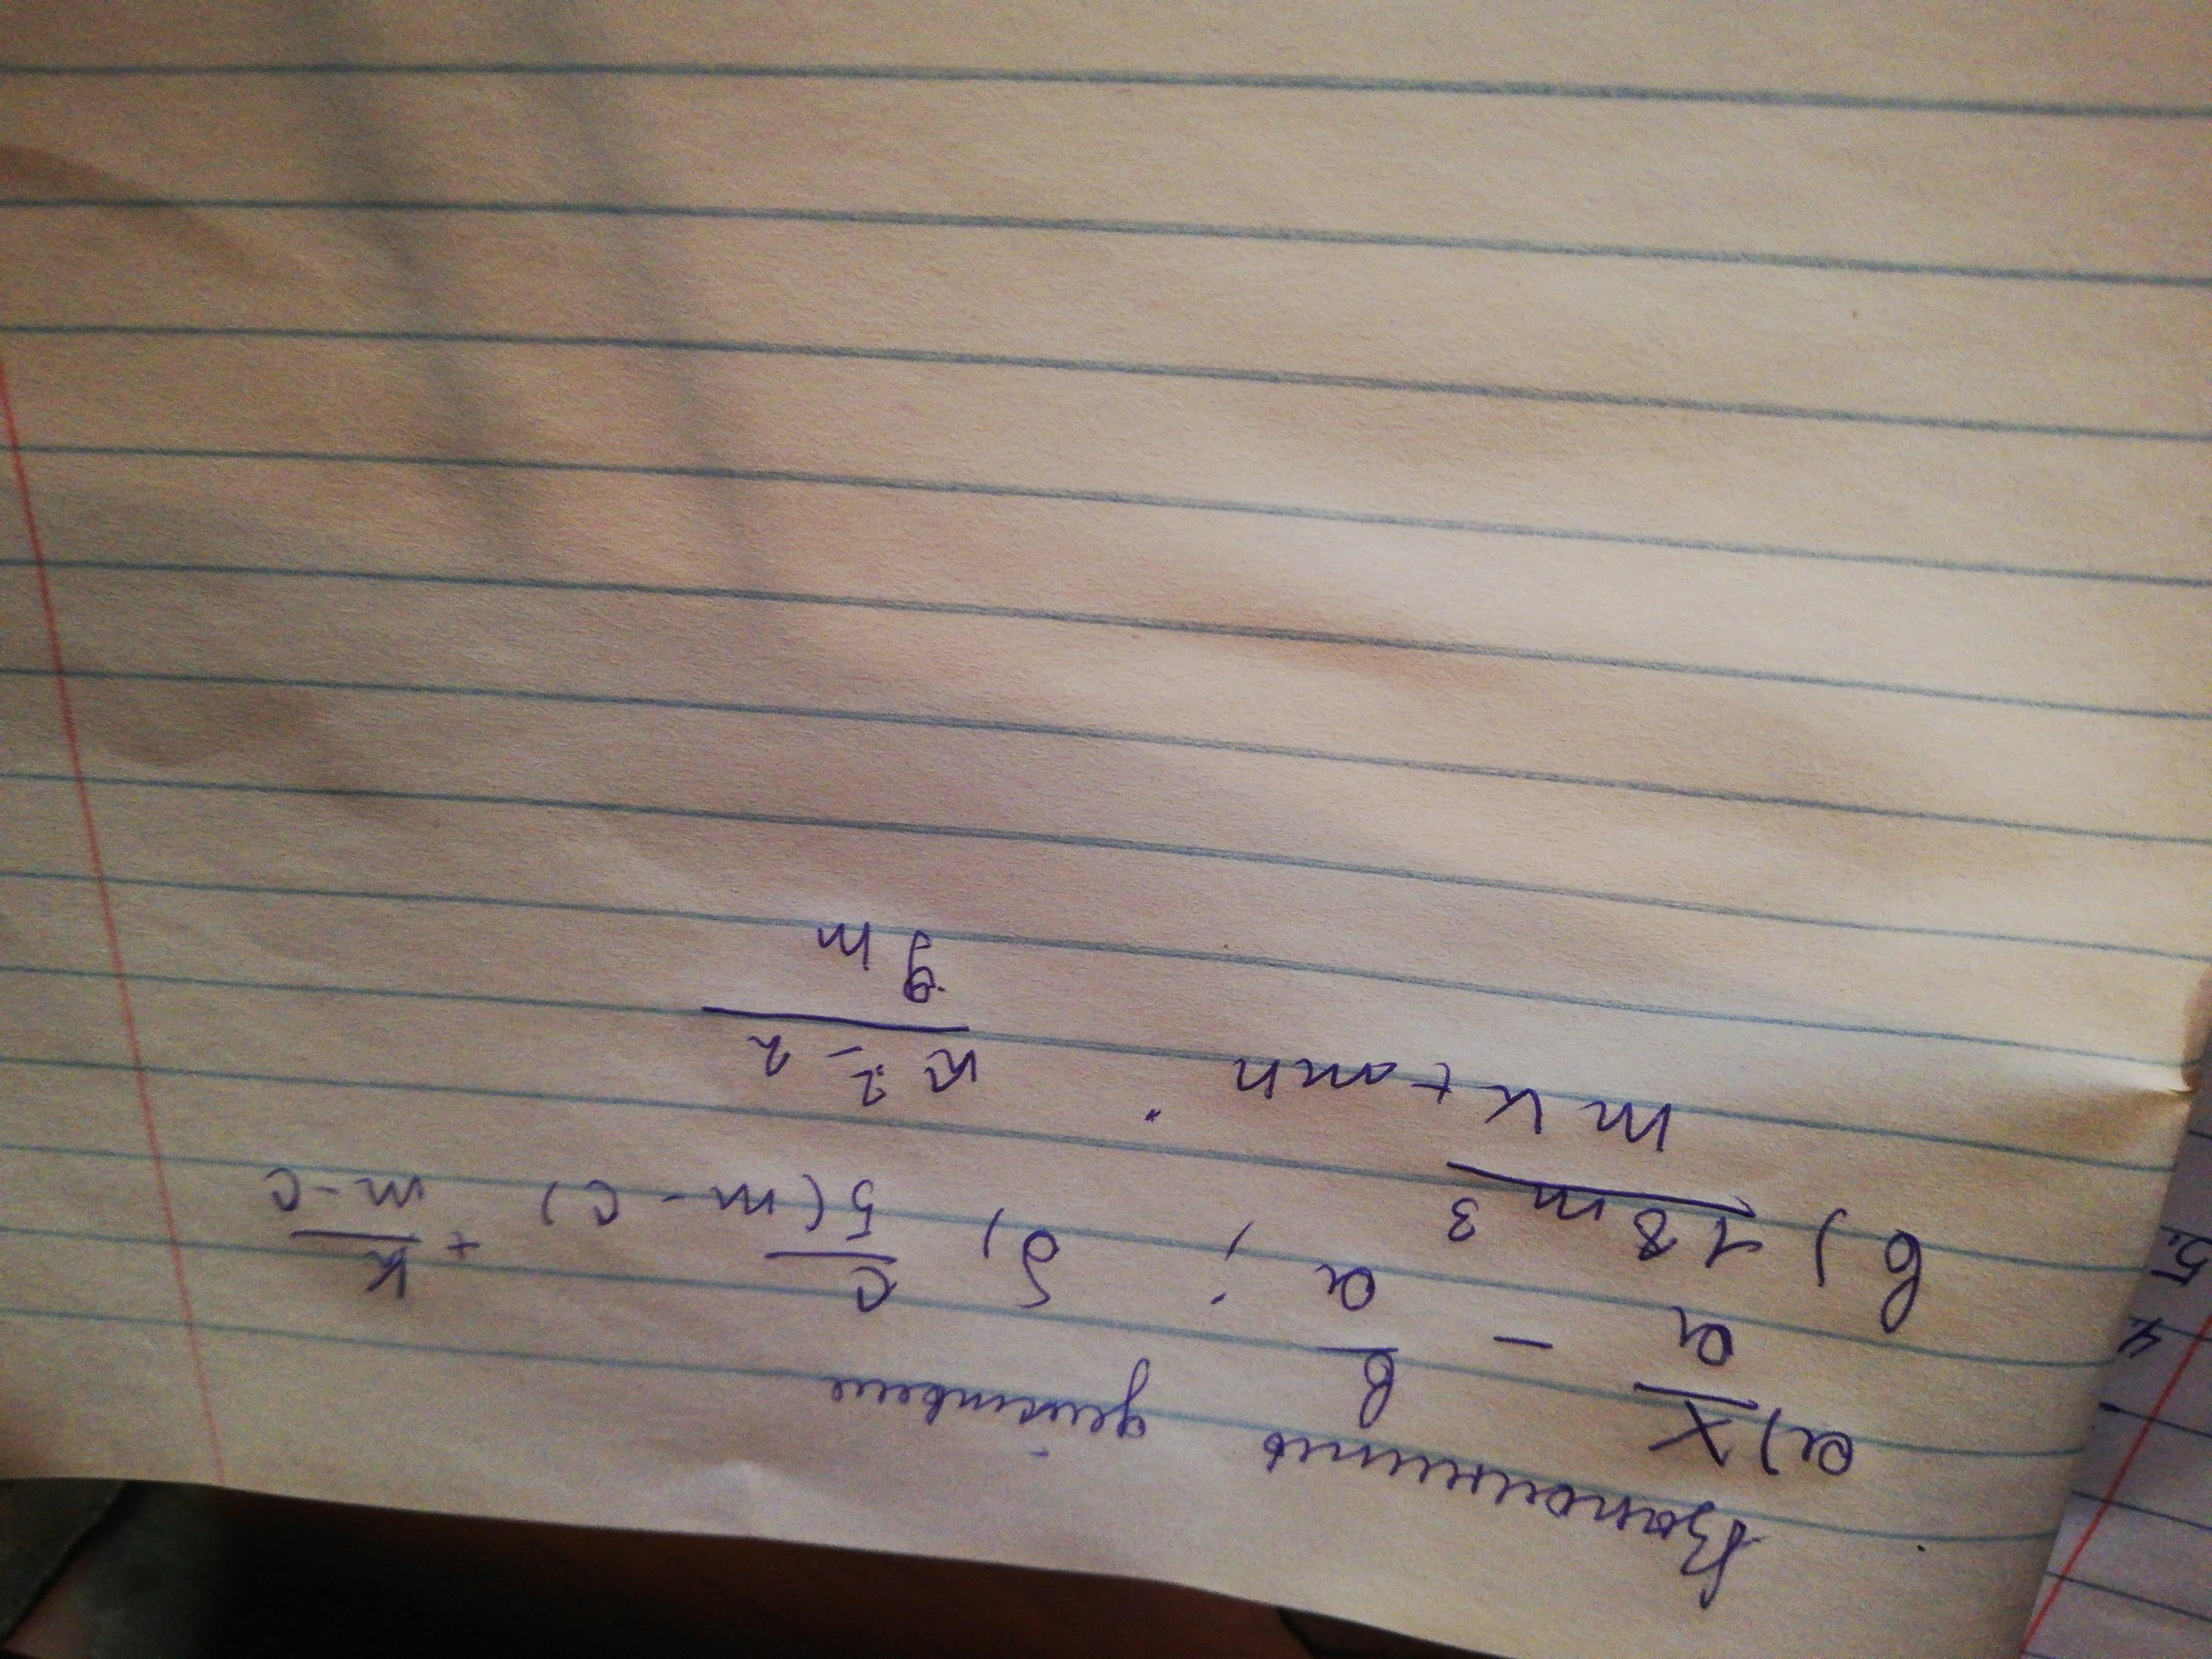 Выполнить действие
а) x/a - b/a ; б) c/5(m-c) + k/m-c
в) 18m³/mk+mn · k²-2/9m
4.
5.